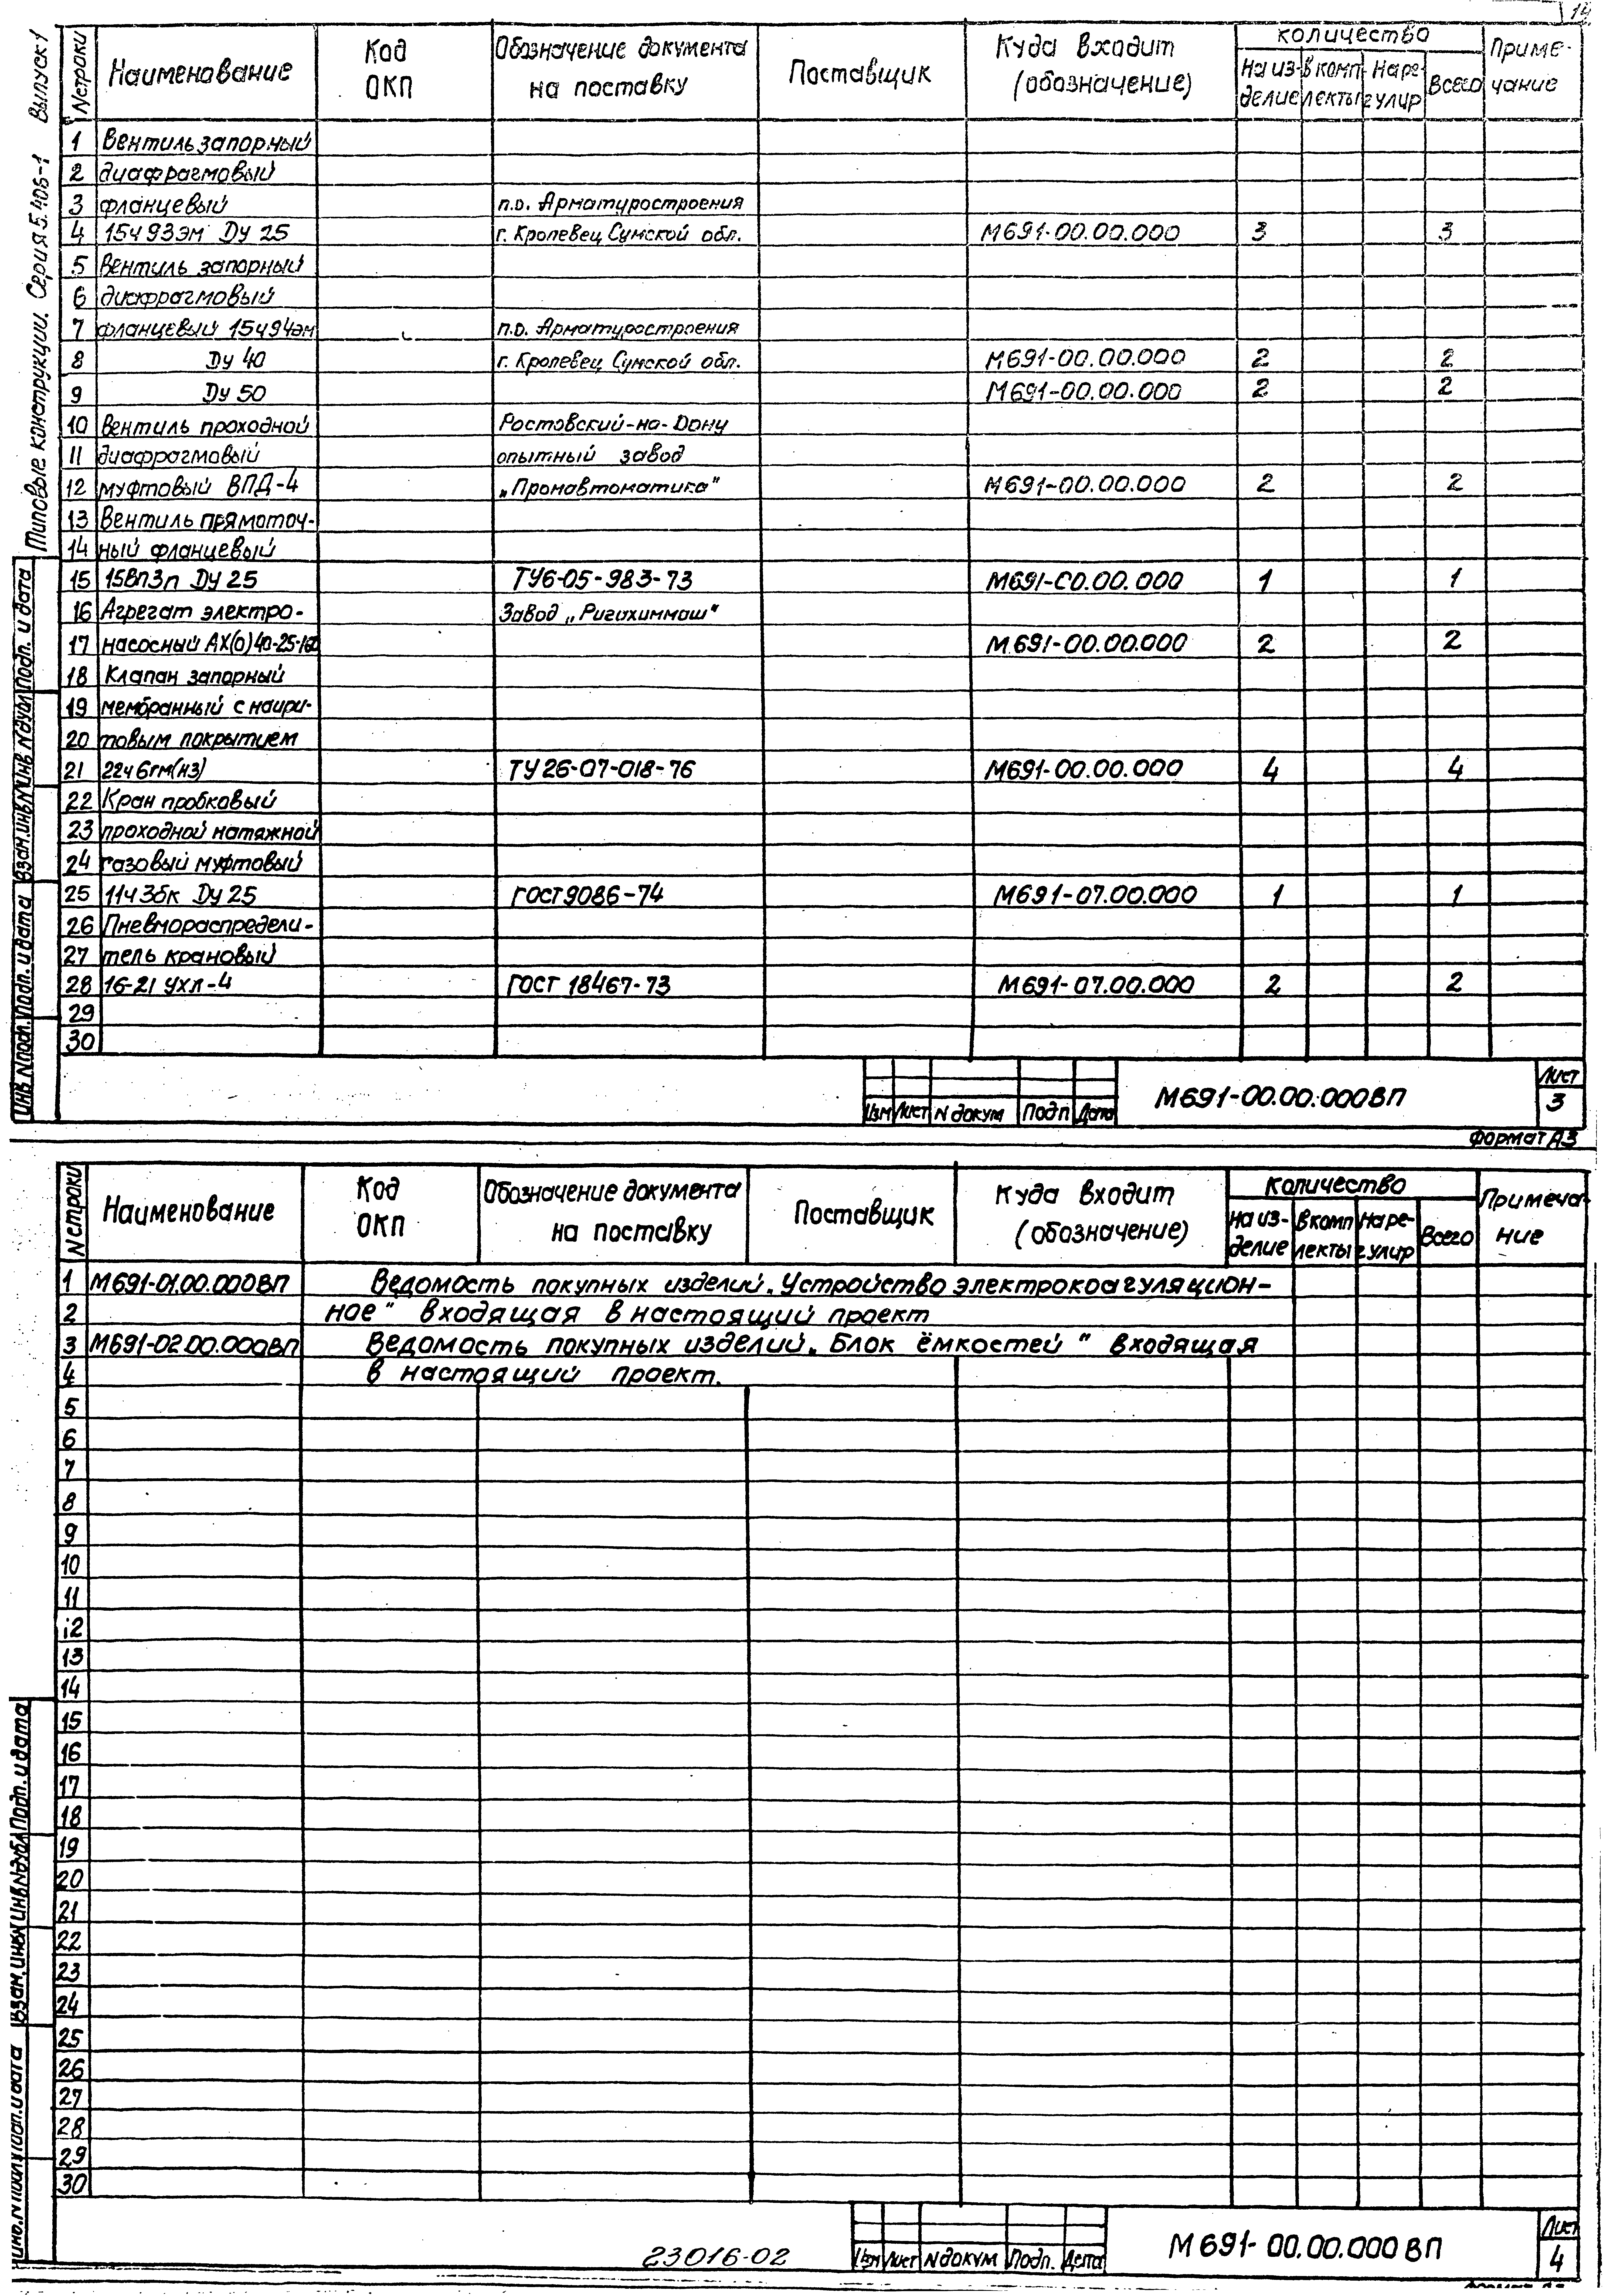 14
Типовые конструкции. Серия 5.406-1 Выпуск 1
N строки Наименование Код ОКП Обозначение документа на поставку Поставщик Куда входит (обозначение) Количество На изделие в комплекты На регулир Всего Примечание
1 Вентиль запорный
2 диафрагмовый
3 фланцевый п.о. Арматуростроения
4 15ч 93эм Ду 25 г. Кролевец Сумской обл. М691-00.00.000 3 3
5 Вентиль запорный
6 диафрагмовый
7 фланцевый 15ч94эм п.о. Арматуростроения
8 Ду 40 г. Кролевец Сумской обл. М691-00.00.000 2 2
9 Ду 50 М691-00.00.000 2 2
10 Вентиль проходной Ростовский-на-Дону
11 диафрагмовый опытный завод
12 муфтовый ВПД-4 „Промавтоматика" М691-00.00.000 2 2
13 Вентиль прямоточ-
14 ный фланцевый
15 15Вп3п Ду 25 ТУ6-05-983-73 М691-00.00.000 1 1
16 Агрегат электро- Завод „Ригахиммаш"
17 насосный АХ(О)40-25-160 М.691-00.00.000 2 2
18 Клапан запорный
19 мембранный с наири-
20 товым покрытием
21 22ч6гм(нз) ТУ 26-07-018-76 М691-00.00.000 4 4
22 Кран пробковый
23 проходной натяжной
24 газовый муфтовый
25 11ч3бк Ду 25 ГОСТ 9086-74 М691-07.00.000 1 1
26 Пневмораспредели-
27 тель крановый
28 16-21 УХЛ-4 ГОСТ 18467-73 М691-07.00.000 2 2
29
30
Инв N подл. Подп. и дата Взам.инв N Инв N дубл Подп. и дата
Изм Лист N докум Подп Дата М691-00.00.000ВП Лист 3
Формат А3
N строки Наименование Код ОКП Обозначение документа на поставку Поставщик Куда входит (обозначение) Количество На изделие в комплекты На регулир Всего Примечание
1 М691-01.00.000ВП Ведомость покупных изделий. Устройство электрокоагуляцион-
2 ное" входящая в настоящий проект
3 М691-02.00.000ВП Ведомость покупных изделий. Блок ёмкостей" входящая
4 в настоящий проект.
5
6
7
8
9
10
11
12
13
14
15
16
17
18
19
20
21
22
23
24
25
26
27
28
29
30
Инв. N подл Подп. и дата Взам.инв N Инв N дубл Подп. и дата
23016-02
Изм Лист N докум Подп. Дата М691-00.00.000ВП Лист 4